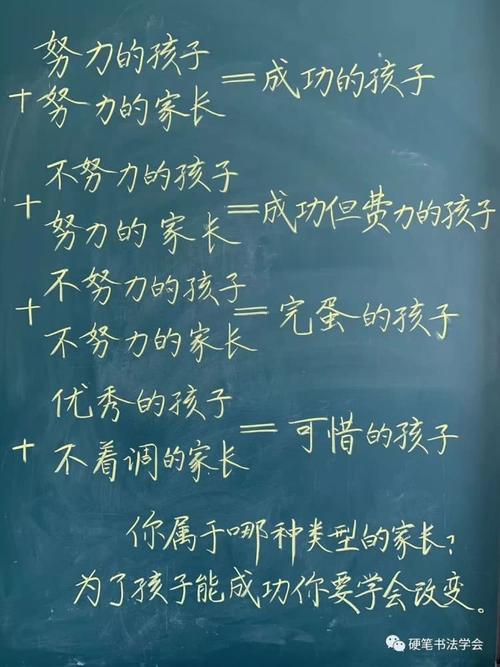 努力的孩子
+努力的家长
=成功的孩子
不努力的孩子
+
努力的家长
=成功但费力的孩子
不努力的孩子
+
不努力的家长
=完蛋的孩子
优秀的孩子
+
不着调的家长
=可惜的孩子
你属于哪种类型的家长?
为了孩子能成功你要学会改变。
硬笔书法学会